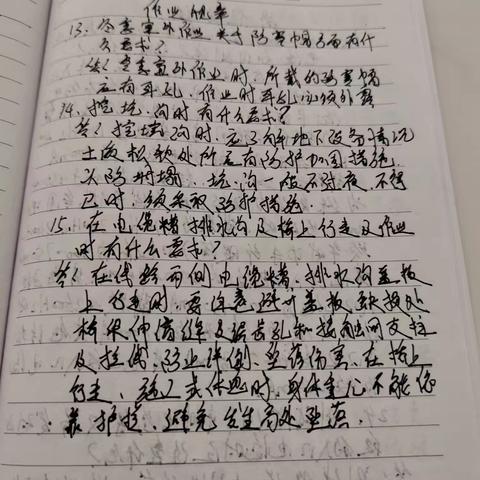 作业
13. 冬季室外作业,关于防寒帽方面有什
么要求?
答:冬季室外作业时,所戴的防寒帽
应有耳孔,作业时耳孔必须外露
14. 挖坑、沟时有什么要求?
答:挖坑沟时,应了解地下设备情况
土质松软处所应有防护加固措施
以防坍塌,坑、沟一般不过夜,不得
已时,须采取防护措施。
15. 在电缆槽、排水沟及桥上行走及作业
时有什么要求?
答:在线路两侧电缆槽、排水沟盖板
上行走时,要注意避开盖板缺损处
桥梁伸缩缝及泄水孔和接触网支柱
及拉线,防止绊倒、坠落伤害,在桥上
行走、施工或休息时,身体重心不能倚
靠护栏,避免发生高处坠落。